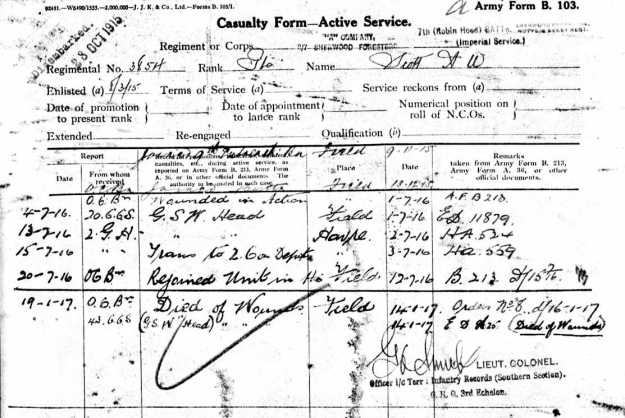 Army Form B. 103.
Casualty Form—Active Service.
Disembarked
28 OCT 1915
"A" COMPANY,
7th (Robin Hood) BATTN.
(Imperial Service.)
Regiment or Corps 2/7 SHERWOOD FORESTERS
Regimental No. 3854 Rank Pte Name Scott A W
Enlisted (a) 8/3/15 Terms of Service (a) Service reckons from (a)
Date of promotion to present rank Date of appointment to lance rank Numerical position on roll of N.C.Os.
Extended Re-engaged Qualification (b)
Report
Date From whom received
casualties, etc., during active service, as reported on Army Form B. 213, Army Form A. 36, or in other official documents. The authority to be quoted in each case.
Place
Date
Remarks
taken from Army Form B. 213, Army Form A. 36, or other official documents.
Field 9-11-15
Field
O.C. Bn Wounded in Action 1-7-16 A.F. B213.
4-7-16 20.C.C.S. G.S.W. Head Field 1-7-16 E.D. 11879.
13-7-16 2.G.H. " " Havre. 2-7-16 HA. 534
15-7-16 " " Trans to 2 Con Depot 3-7-16 Ha. 559
20-7-16 OC Bn Rejoined Unit in the Field 12-7-16 B. 213
19-1-17 O.C. Bn Died of Wounds Field 14-1-17 Order No 8. d/16-1-17
43.C.C.S (G.S.W Head) " " 14-1-17 E D (Died of Wounds)
LIEUT. COLONEL.
Officer i/c Terr: Infantry Records (Southern Section).
G. H. Q. 3rd Echelon.